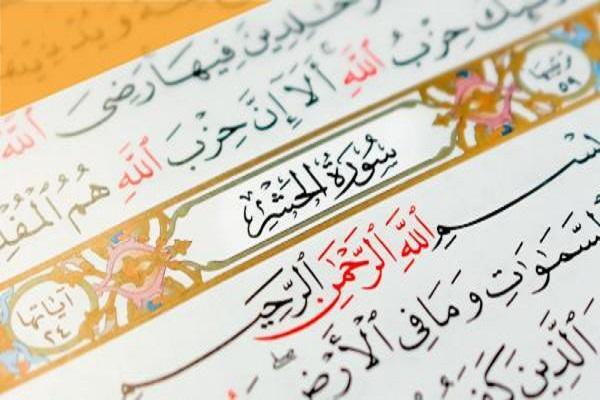 خَٰلِدِينَ فِيهَا رَضِىَ ٱللَّهُ
حِزْبُ ٱللَّهِ أَلَا إِنَّ حِزْبَ ٱللَّهِ هُمُ ٱلْمُفْلِ
ترتيبها ٥٩
سُورَةُ الحَشْرِ
آياتها ٢٤
سْمِ ٱللَّهِ ٱلرَّحْمَٰنِ ٱلرَّحِيمِ
ٱلسَّمَٰوَٰتِ وَمَا فِى ٱلْأَرْضِ
ٱلَّذِينَ كَفَرُ